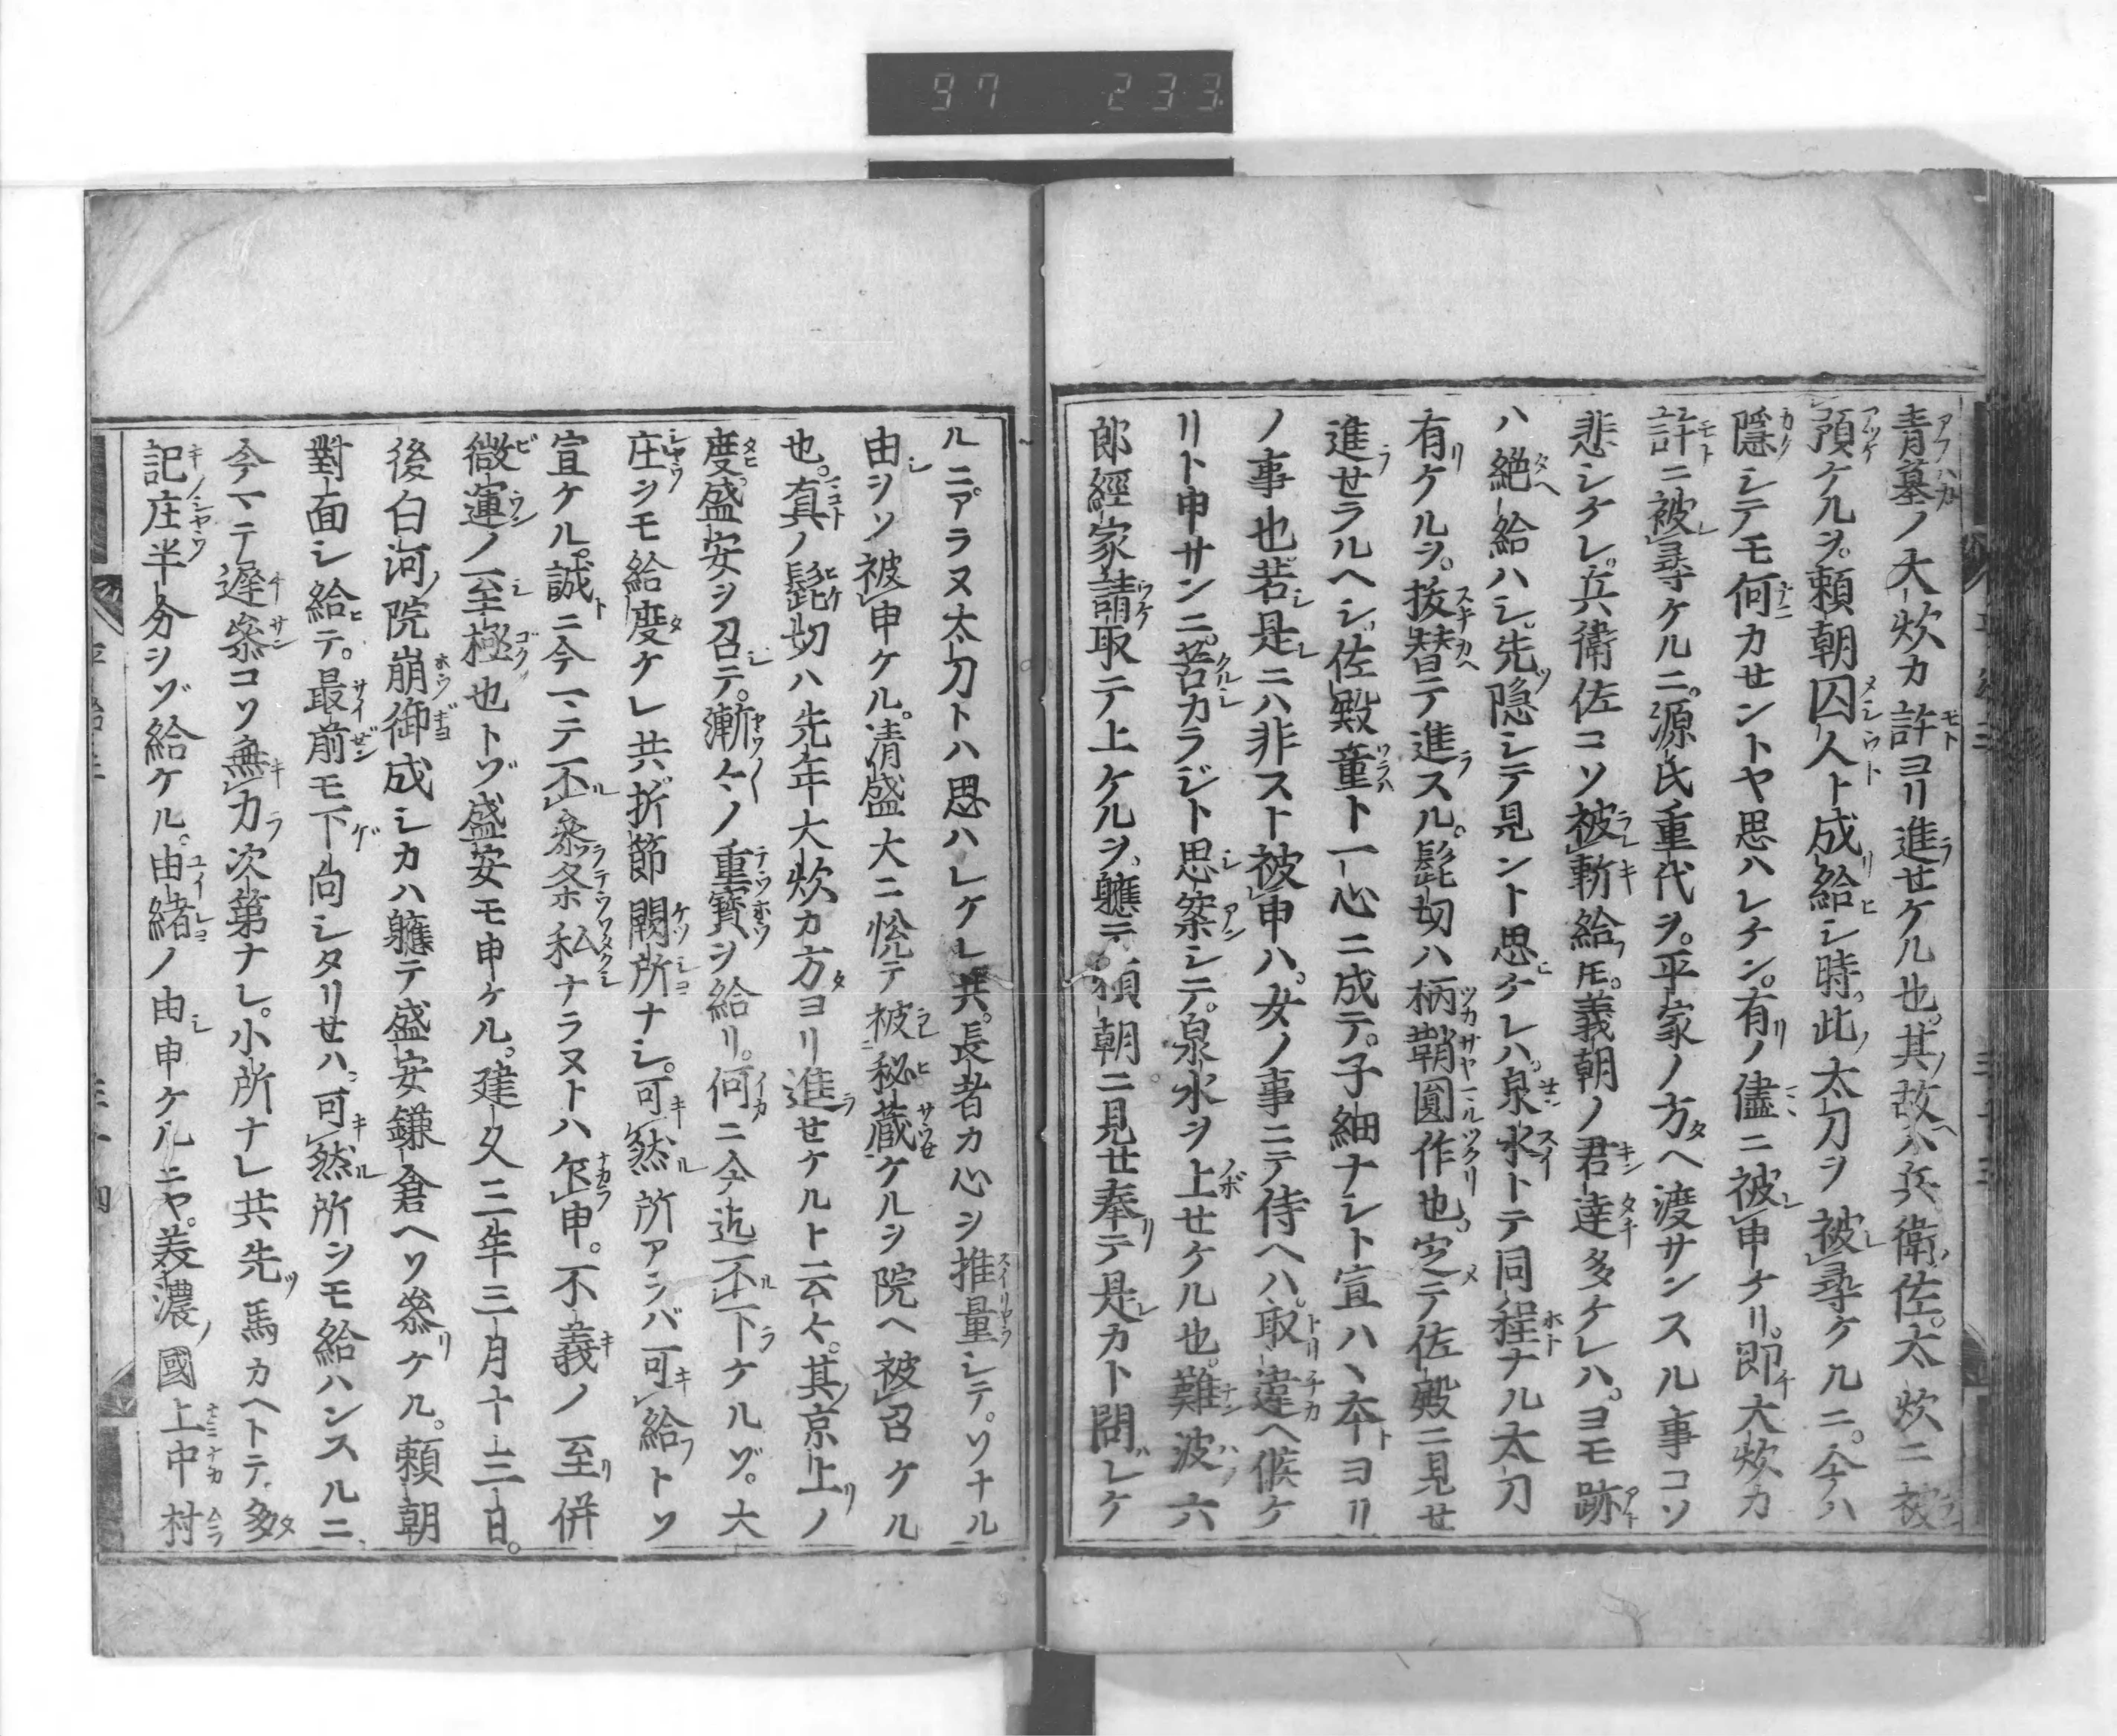 97 233
青墓ノ大炊カ許ヨリ進セケル也。其故ハ兵衛佐。大炊ニ被
預ケルヲ。頼朝囚人ト成給シ時。此太刀ヲ被尋ケルニ。今ハ
隠シテモ何カセントヤ思ハレケン。有ノ儘ニ被申ケリ。即大炊カ
許ニ被尋ケルニ。源氏重代ヲ。平家ノ方ヘ渡サンスル事コソ
悲シケレ。兵衛佐コソ被斬給フ𪜈。義朝ノ君達多ケレハ。ヨモ跡
ハ絶給ハシ。先隠シテ見ント思ケレハ。泉水トテ同程ナル太刀
有ケルヲ。抜替テ進スル。髭切ハ柄鞘圓作也。定テ佐殿ニ見せ
進せラルヘシ。佐殿童ト一心ニ成テ。子細ナシト宣ハヽ本ヨリ
ノ事也。若是ニハ非スト被申ハ。女ノ事ニテ侍ヘハ。取違ヘ候ケ
リト申サンニ。苦カラジト思案シテ。泉水ヲ上せケル也。難波六
郎經家請取テ上ケルヲ。軈テ頼朝ニ見せ奉テ是カト問レケ
ルニ。アラヌ太刀トハ思ハレケレ共。長者カ心シ推量シテ。ソナル
由シソ被申ケル。清盛大ニ悦テ被秘蔵ケルヲ院ヘ被召ケル
也。真ノ髭切ハ先年大炊カ方ヨリ進せケルト云々。其京上ノ
度。盛安ヲ召テ。漸々ノ重寳ヲ給リ。何ニ今迄不下ケルゾ。大
庄シモ給度ケレ共折節闕所ナシ。可然所アラバ可給トソ
宣ケル。誠ニ今マテ不参条私ナラヌトハ乍申。不義ノ至リ併
微運ノ至極也トゾ盛安モ申ケル。建久三年三月十三日。
後白河院崩御成シカハ軈テ盛安鎌倉ヘソ参ケル。頼朝
對面シ給テ。最前モ下向シタリせハ。可然所シモ給ハンスルニ
今マテ遅参コソ無力次第ナレ。小所ナレ共先馬カヘトテ。多
記庄半分シゾ給ケル。由緒ノ由申ケルニヤ。美濃國上中村